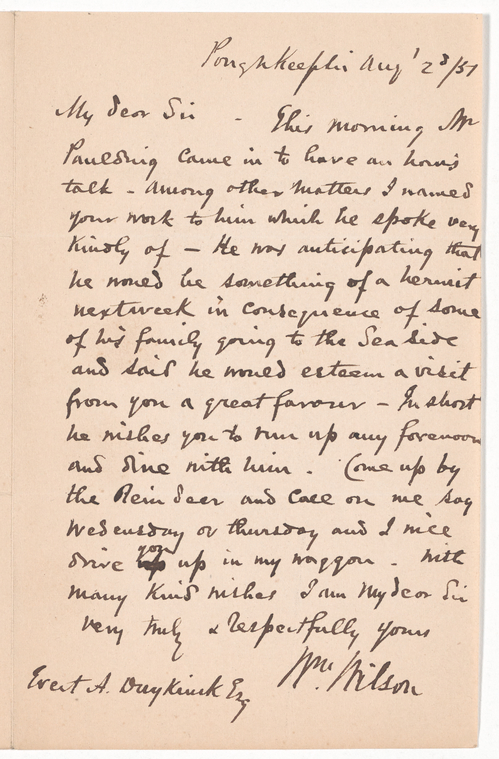 Poughkeepsie Aug' 23/51
My dear Sir - This morning Mr
Paulding came in to have an hour's
talk - Among other matters I named
your work to him which he spoke very
kindly of - He was anticipating that
he would be something of a hermit
next week in consequence of some
of his family going to the Sea Side
and said he would esteem a visit
from you a great favour - In short
he wishes you to run up any forenoon
and dine with him. Come up by
the Reindeer and call on me say
Wedensday or thursday and I will
drive you up in my waggon - With
many kind wishes I am My dear Sir
very truly & respectfully yours
Wm. Wilson
Evert A. Duykinck Esq